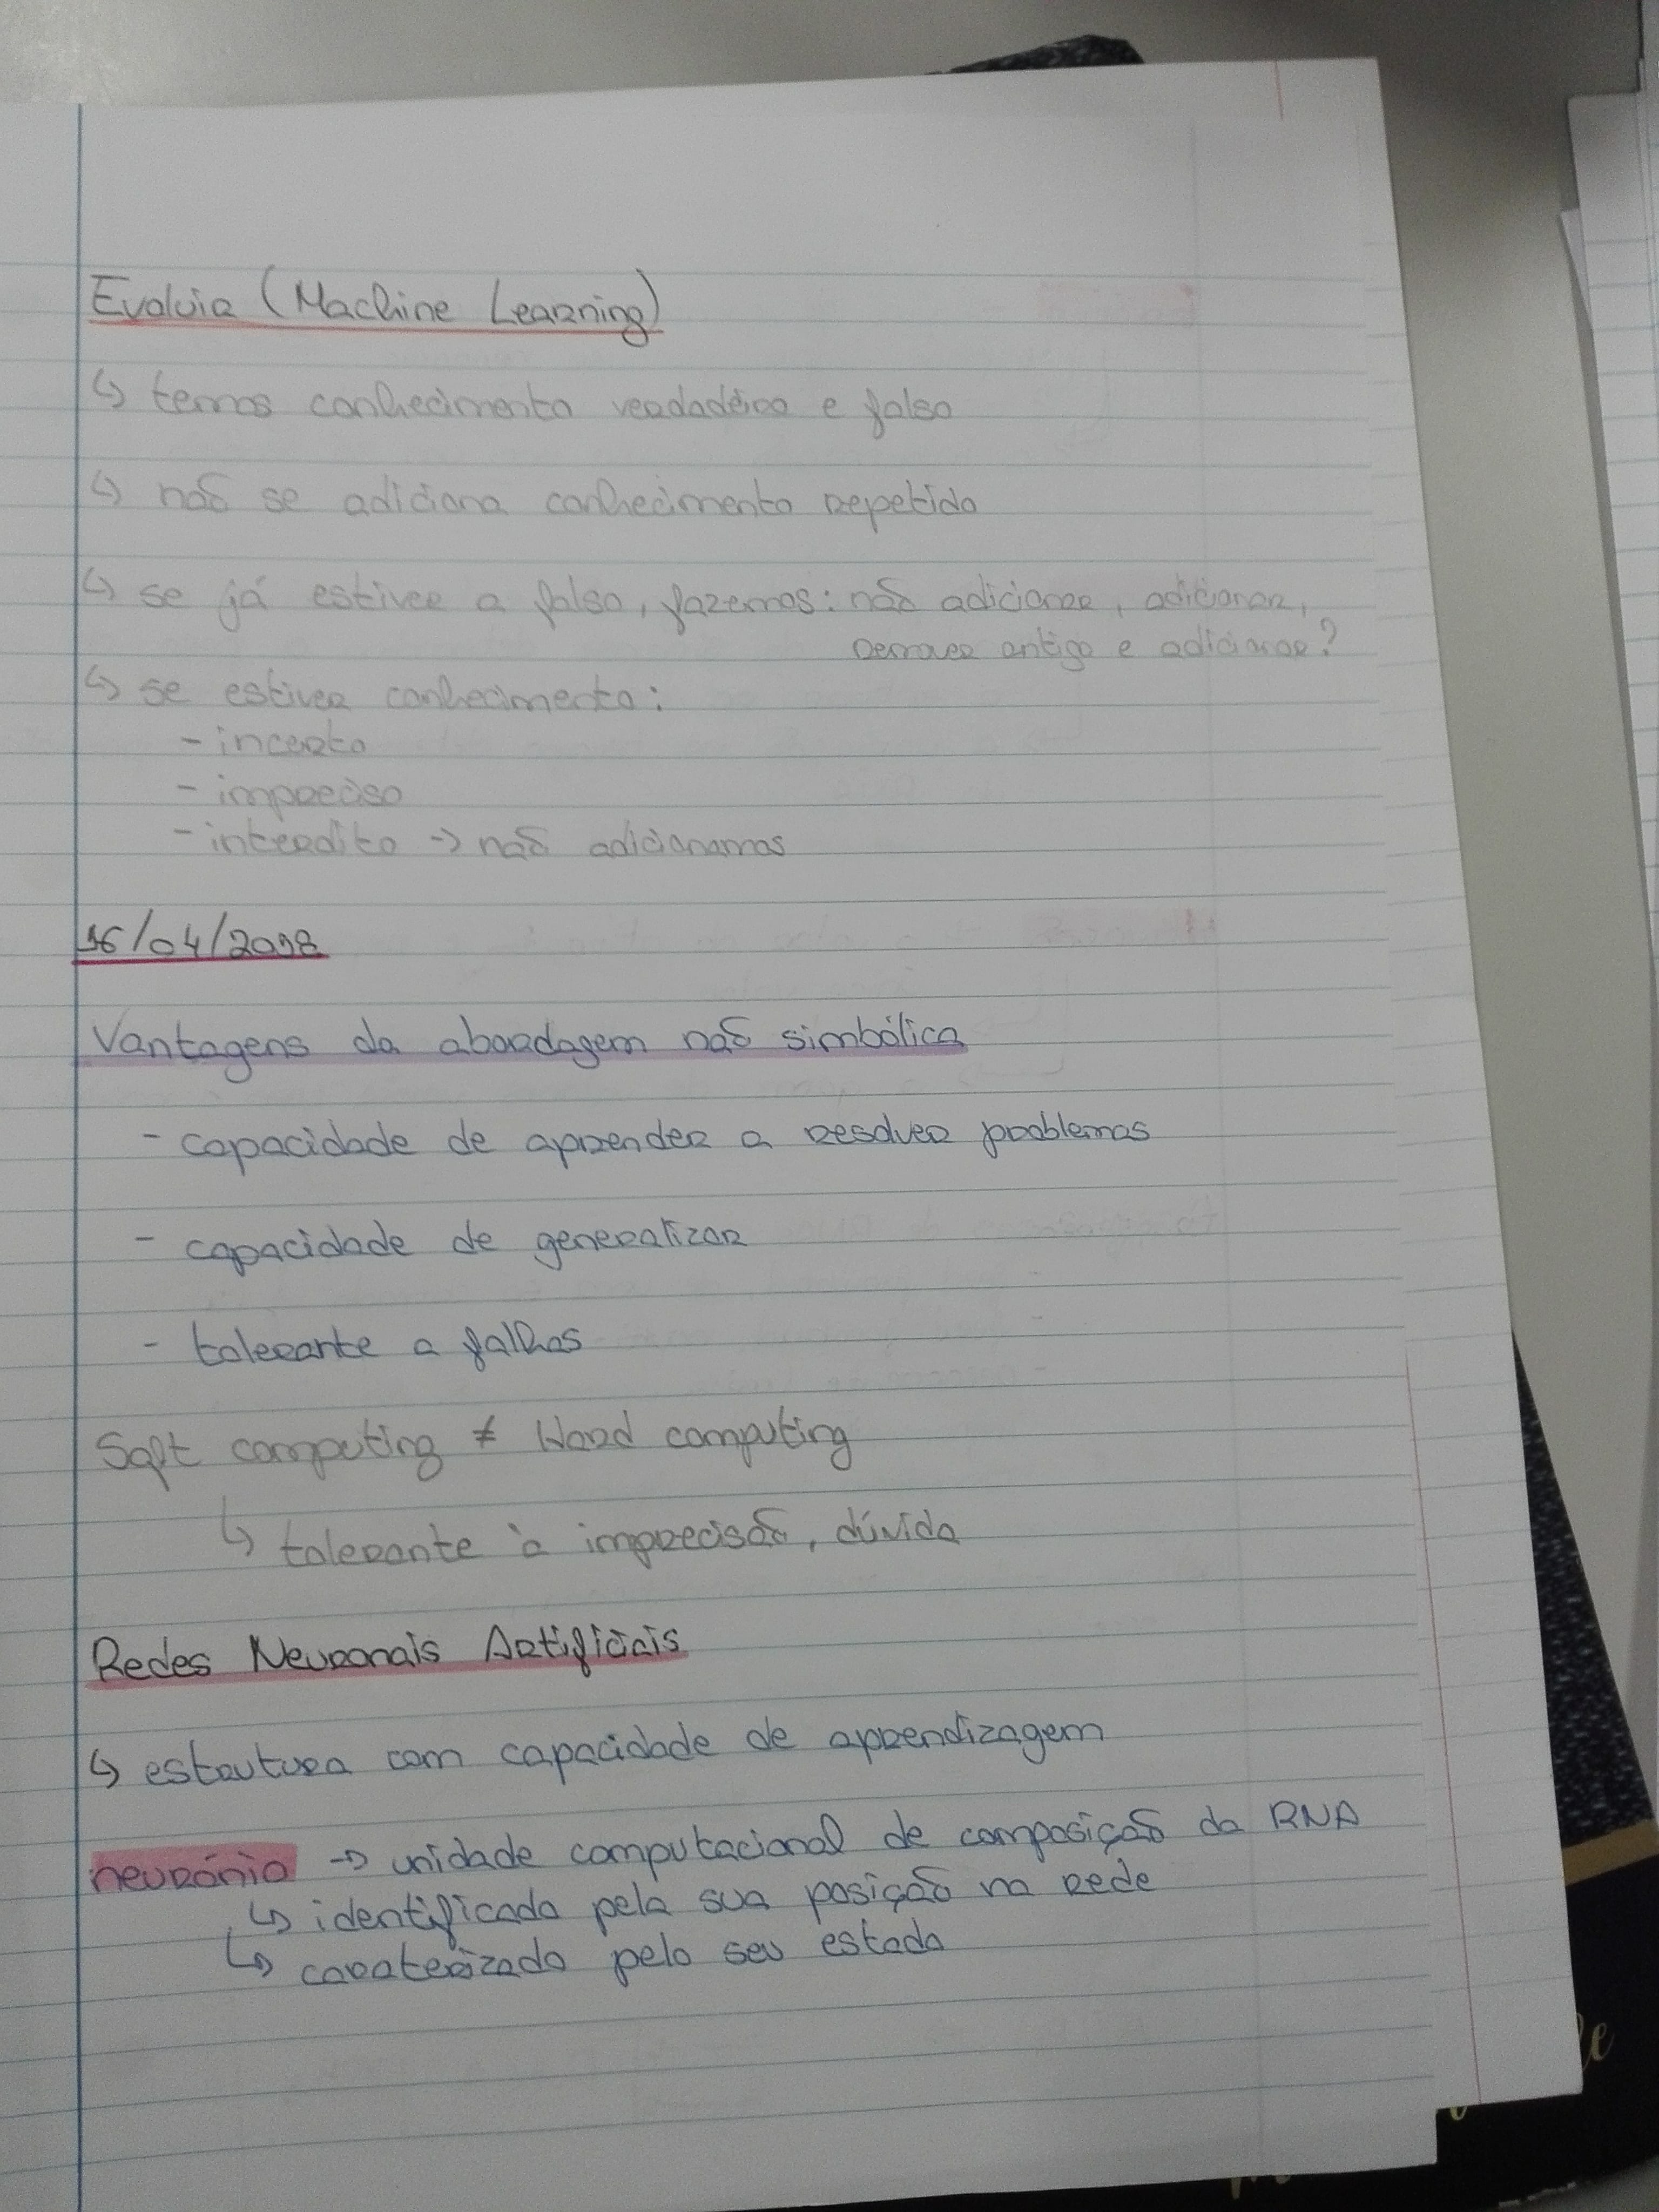 Evoluia (Machine Learning)
↳ temos conhecimento verdadeiro e falso
↳ não se adiciona conhecimento repetido
↳ se já estiver a falso, fazemos: não adicionar, adicionar,
remover antigo e adicionar?
↳ se estiver conhecimento:
- incerto
- impreciso
- interdito → não adicionamos
16/04/2018
Vantagens da abordagem não simbólica
- capacidade de aprender a resolver problemas
- capacidade de generalizar
- tolerante a falhas
Soft computing ≠ Hard computing
↳ tolerante à imprecisão, dúvida
Redes Neuronais Artificiais
↳ estrutura com capacidade de aprendizagem
neurónio → unidade computacional de composição da RNA
↳ identificado pela sua posição na rede
↳ caraterizado pelo seu estado